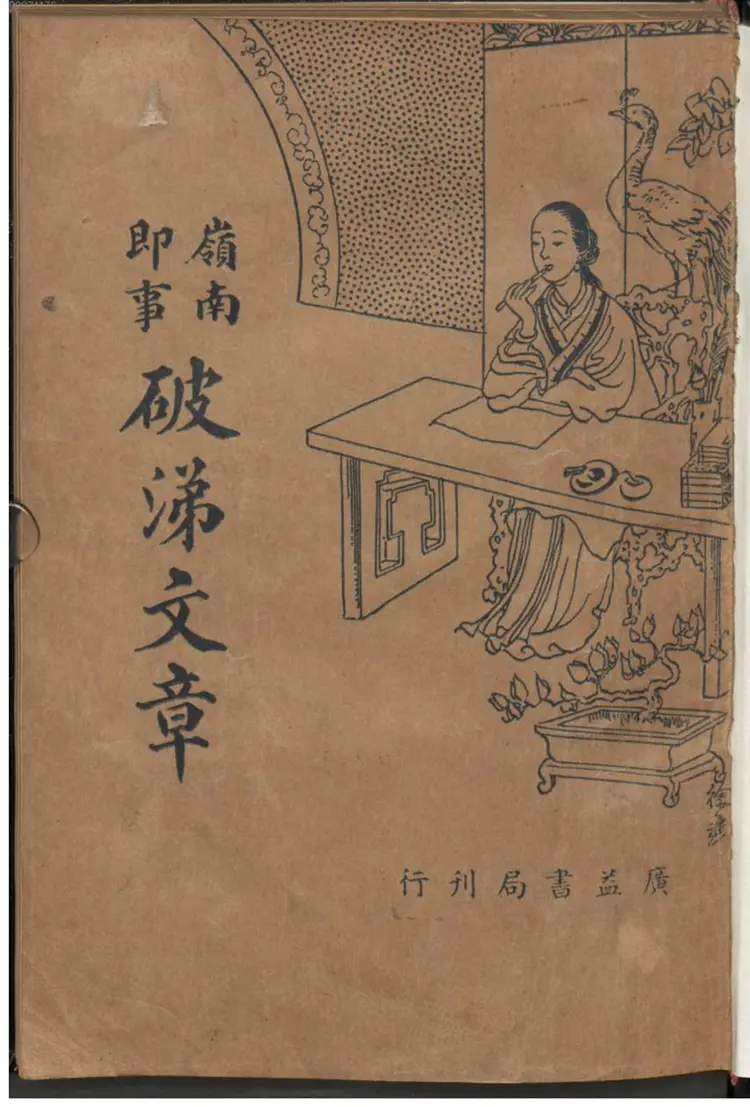 嶺南
即事
破涕文章
廣益書局刊行